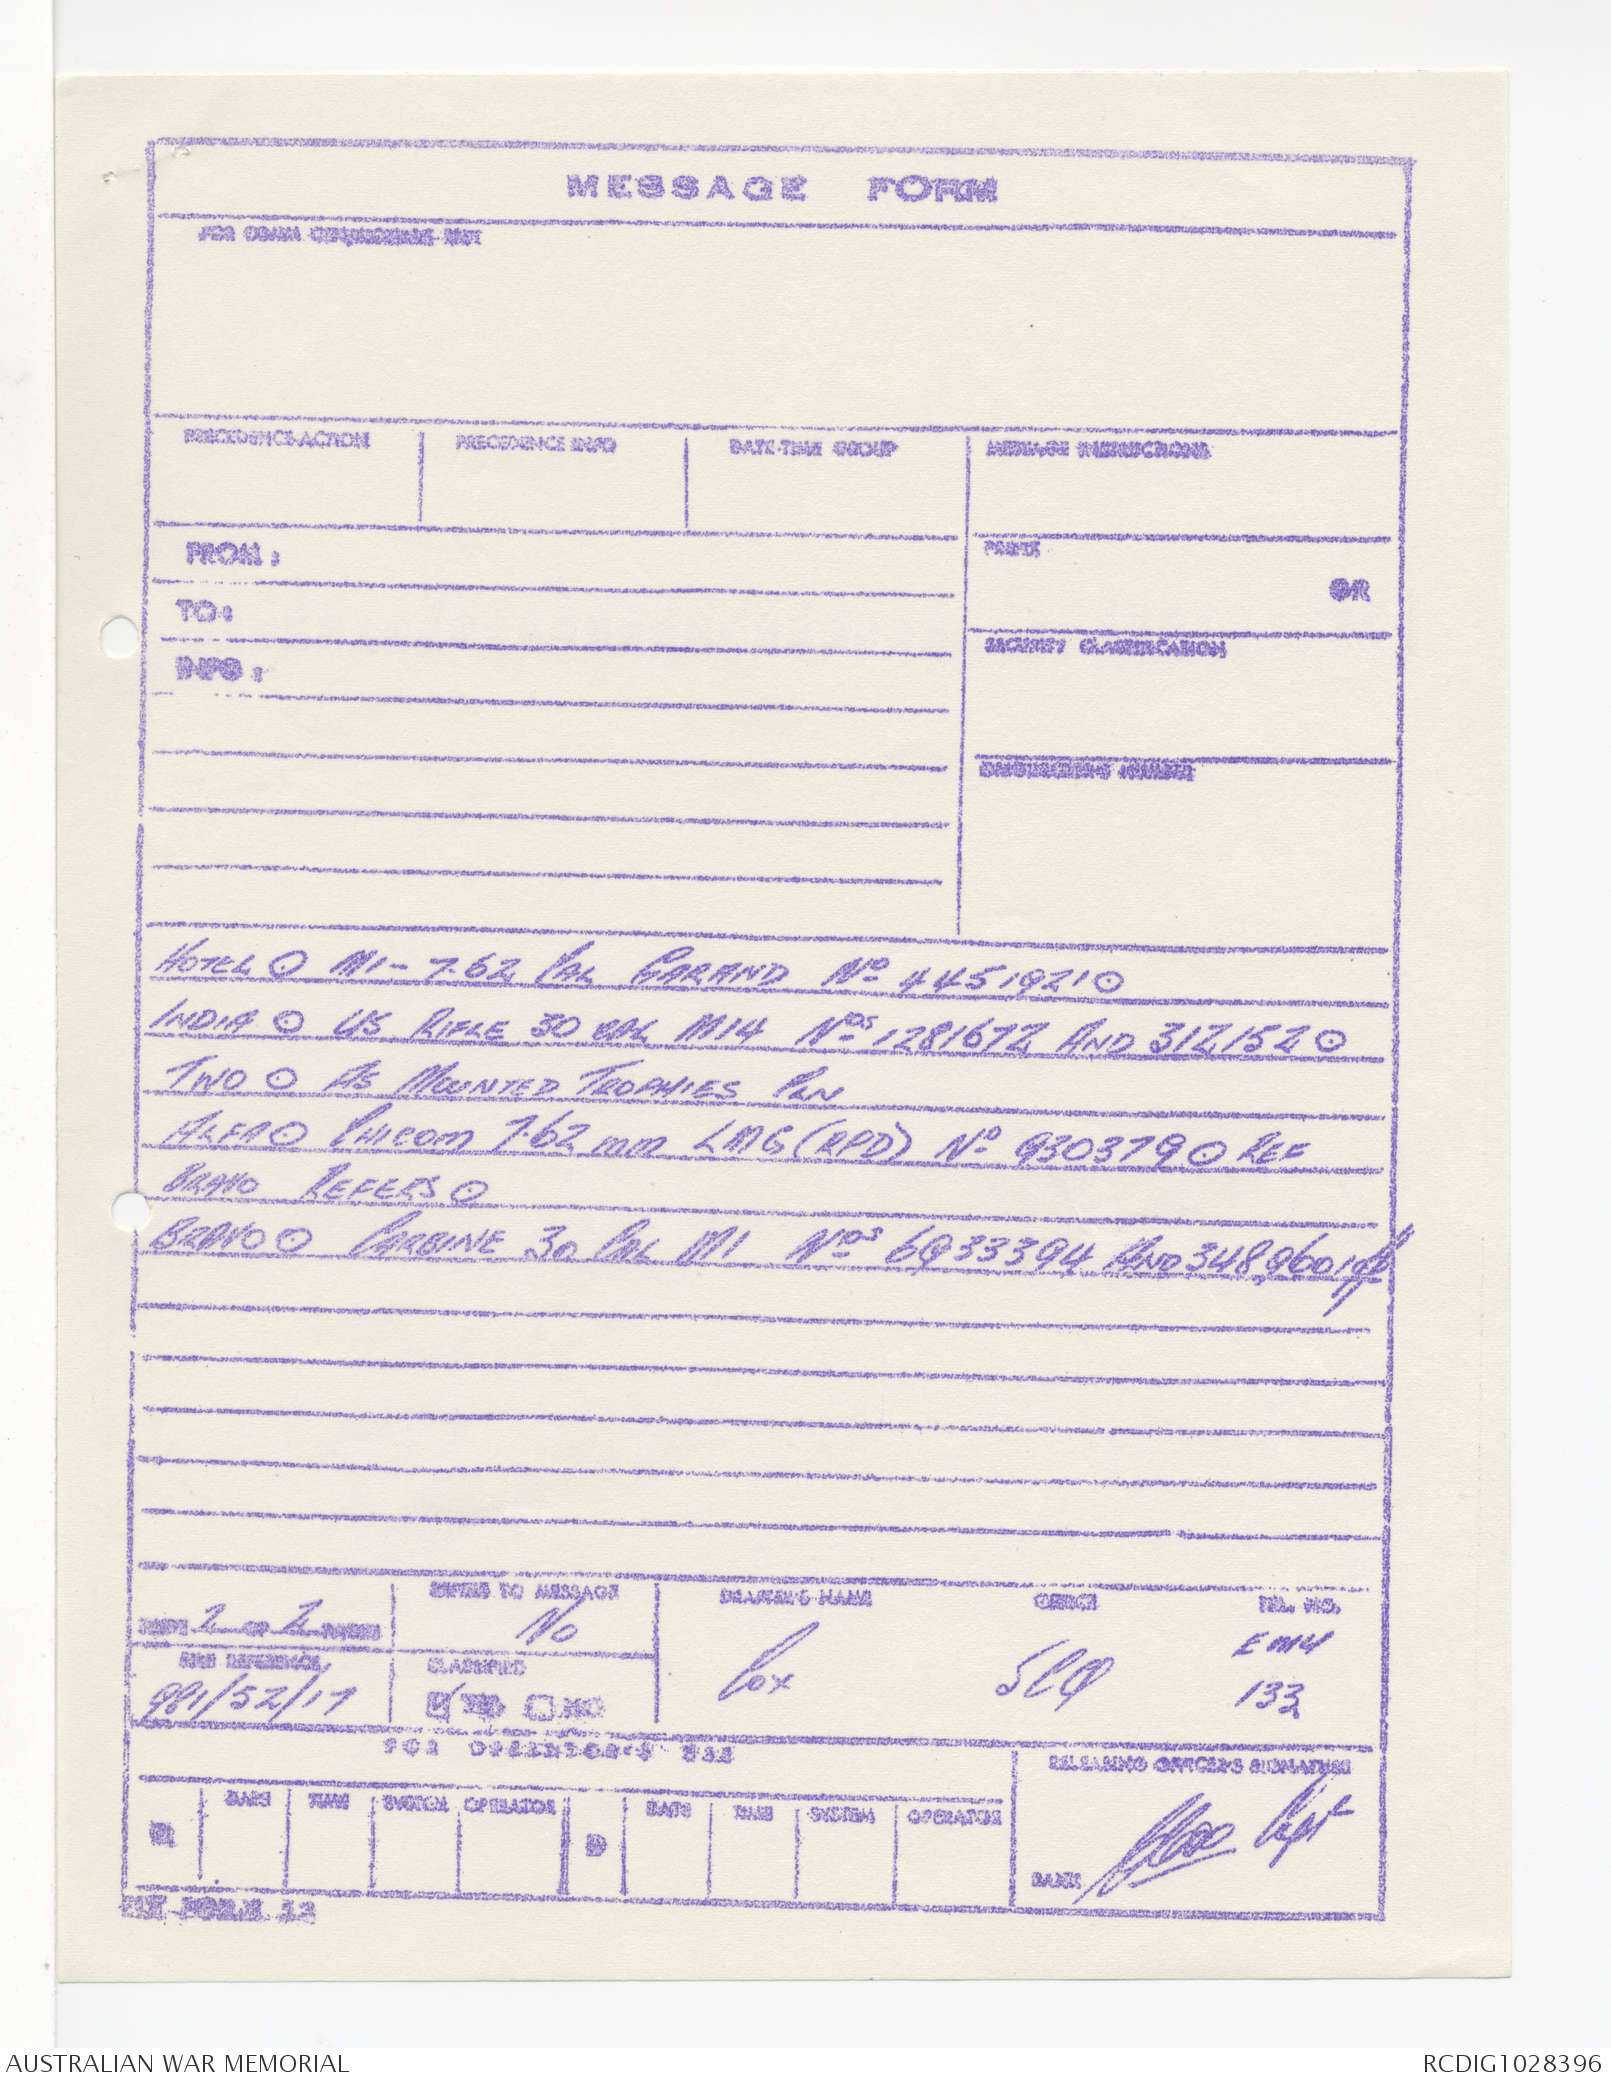 MESSAGE FORM
FOR COMM CEN/SIGNALS USE
PRECEDENCE-ACTION PRECEDENCE-INFO DATE-TIME GROUP MESSAGE INSTRUCTIONS
FROM :
PREFIX
OR
TO :
SECURITY CLASSIFICATION
INFO :
ORIGINATOR'S NUMBER
HOTEL ⊙ M1 - 7.62 CAL GARAND Nº 4451921 ⊙
INDIA ⊙ US RIFLE 30 CAL M14 Nos 1281672 AND 312152 ⊙
TWO ⊙ AS MOUNTED TROPHIES CLN
ALFA ⊙ CHICOM 7.62 mm LMG (RPD) Nº 9303790 REF
BRAVO REFERS ⊙
BRAVO ⊙ CARBINE .30 CAL M1 Nos 6933394 AND 3489601
PAGE 2 OF 2 PAGES
REFERS TO MESSAGE
No
DRAFTER'S NAME
Cox
OFFICE
SCQ
TEL. NO.
EMU
133
FILE REFERENCE
991/52/17
CLASSIFIED
YES NO
FOR OPERATOR'S USE
RELEASING OFFICER'S SIGNATURE
R DATE TIME SYSTEM OPERATOR D DATE TIME SYSTEM OPERATOR
Capt
AUSTRALIAN WAR MEMORIAL
RCDIG1028396